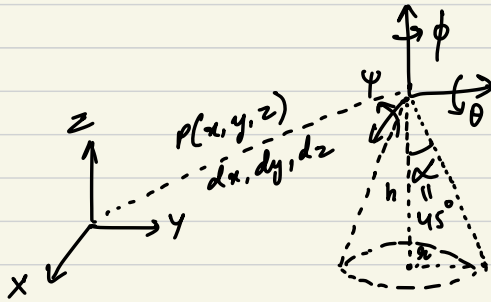 φ
ψ
θ
Z
P(x, y, z)
dx, dy, dz
h
α
=
45°
r
Y
X